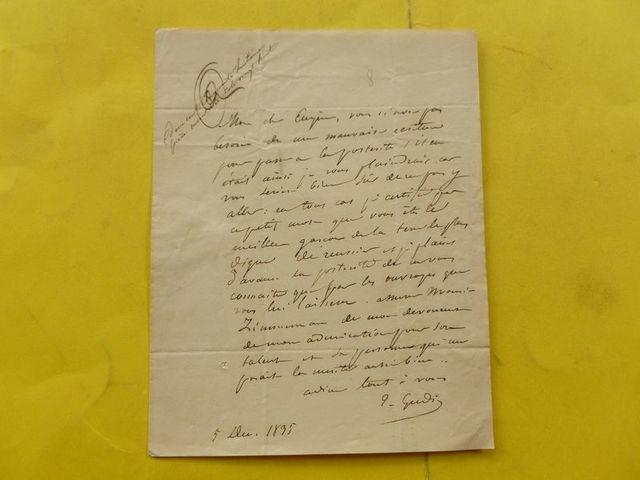 8
Mon cher Eugène, vous n'avez pas
besoin de ma mauvaise écriture
pour passer à la postérité s'il en
était ainsi je vous plaindrais car
vous seriez bien sûr de ne pas y
aller : en tous cas je certifie par
ce petit mot que vous êtes le
meilleur garçon de la terre le plus
digne de réussir et je plains
d'avance la postérité de ne vous
connaitre que par les ouvrages que
vous lui laisserez. assurez
Zimmerman de mon dévouement
de mon admiration pour son
talent et sa personne qui me
parait la mérite aussi bien..
adieu tout à vous
T. Gudin
5 Dec. 1835